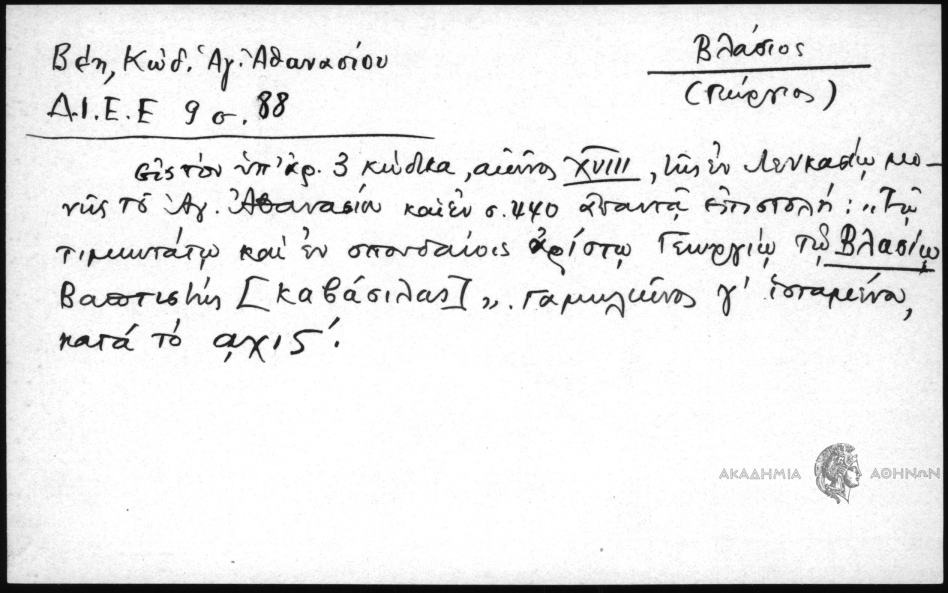 Βέη, Κώδ. Ἁγ. Ἀθανασίου
Δ.Ι.Ε.Ε 9 σ. 88
Βλάσιος
(Γεώργιος)
εἰς τὸν ὑπ' ἀρ. 3 κώδικα, αἰῶνος XVIII, τῆς ἐν Λευκασίῳ μο-
νῆς τοῦ Ἁγ. Ἀθανασίου καὶ ἐν σ. 440 ἀπαντᾷ ἐπιστολή: „Τῷ
τιμιωτάτῳ καὶ ἐν σπουδαίοις ἀρίστῳ Γεωργίῳ τῷ Βλασίῳ
Βαπτιστὴς [Καβάσιλας]„. Γαμηλιῶνος γ' ἱσταμένου,
κατὰ τὸ αχις'.
ΑΚΑΔΗΜΙΑ ΑΘΗΝΩΝ